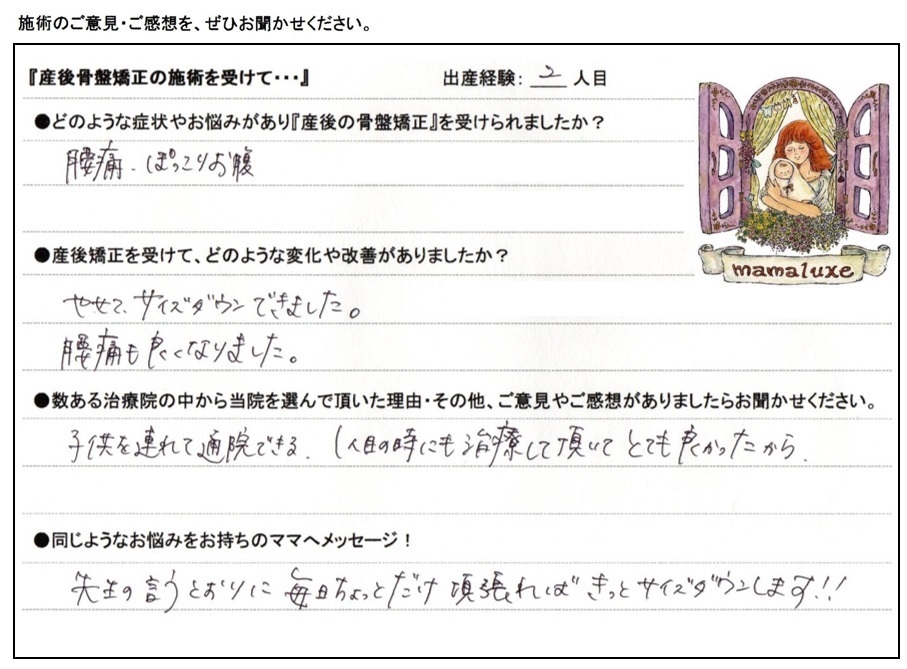 施術のご意見・ご感想を、ぜひお聞かせください。
『産後骨盤矯正の施術を受けて・・・』 出産経験: 2 人目
●どのような症状やお悩みがあり『産後の骨盤矯正』を受けられましたか？
腰痛、ぽっこりお腹
●産後矯正を受けて、どのような変化や改善がありましたか？
やせて、サイズダウンできました。
腰痛も良くなりました。
mamaluxe
●数ある治療院の中から当院を選んで頂いた理由・その他、ご意見やご感想がありましたらお聞かせください。
子供を連れて通院できる、1人目の時にも治療して頂いてとても良かったから、
●同じようなお悩みをお持ちのママへメッセージ！
先生の言うとおりに毎日ちょっとだけ頑張ればきっとサイズダウンします!!